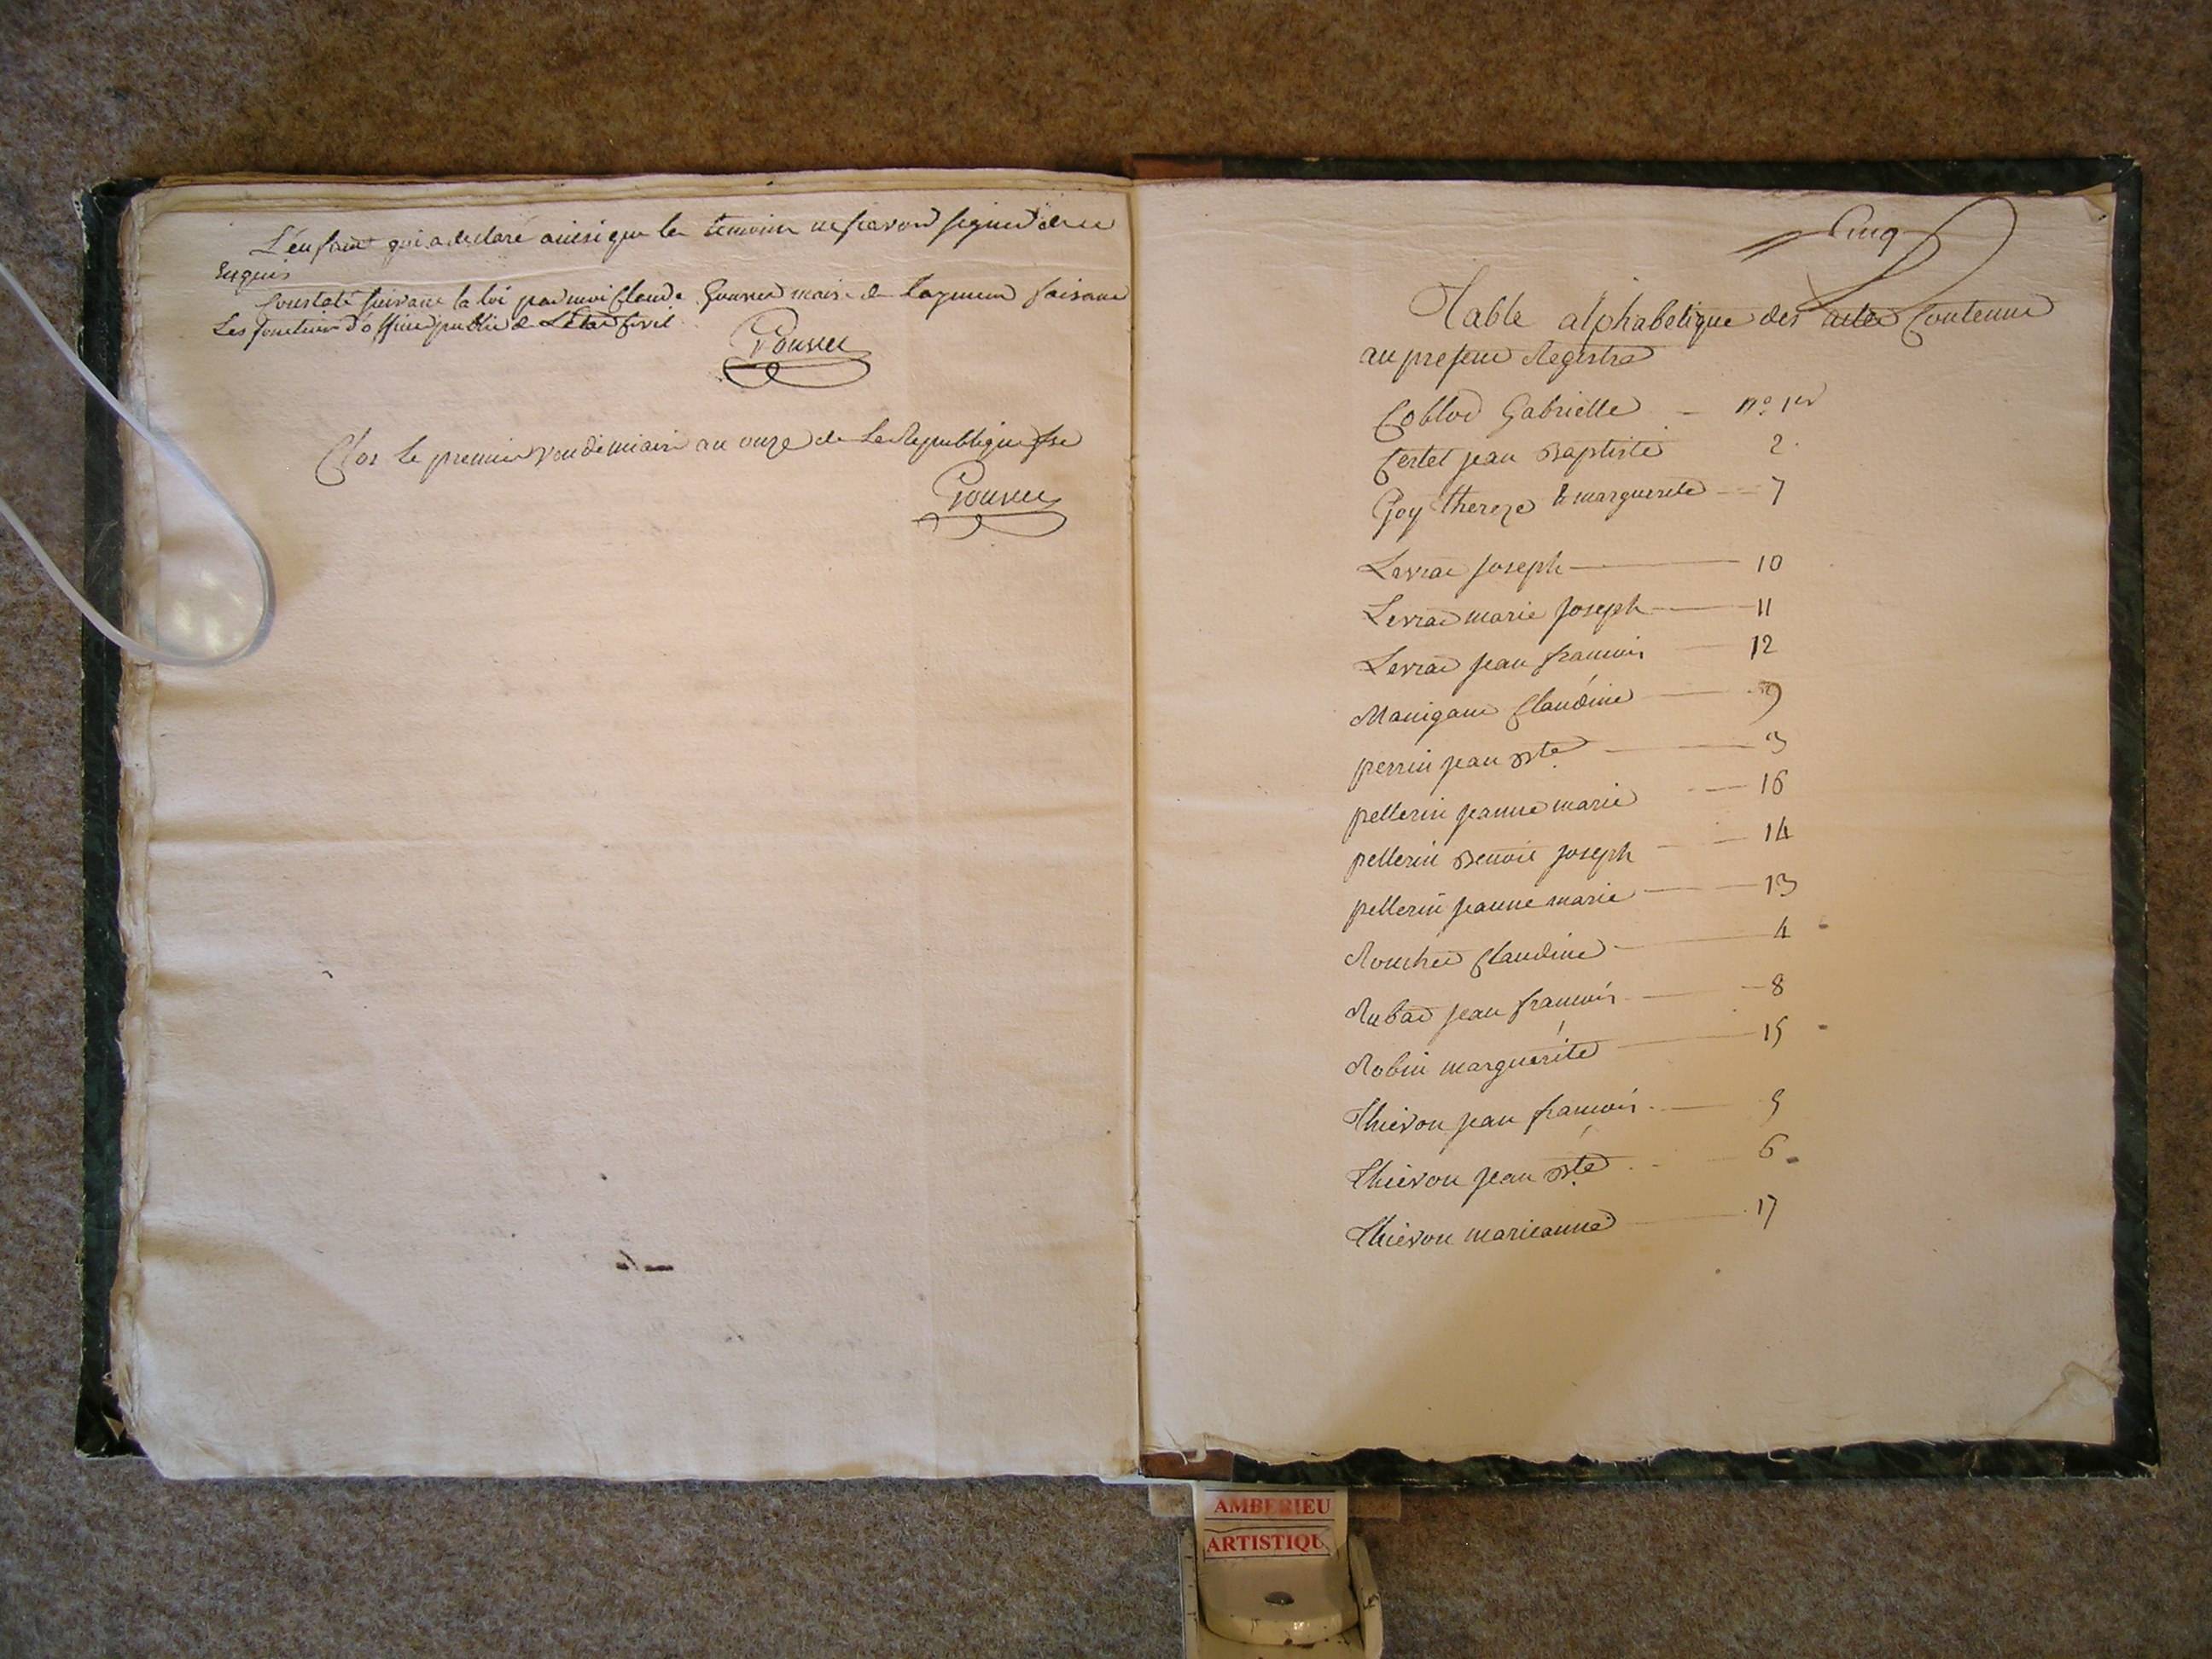 L'enfant qui a declaré ainsi que les temoins ne savoir signer de ce
Enquis
Constaté suivant la loi par moi Claude maire de faisant
Les fonctions d'officier public de L'état Civil
Clos le premier vendemiaire an onze de la Republique fse
Cinq
Table alphabetique des actes Contenus
au present Registre
Gabrielle n° 1er
Jean Baptiste 2
Goy thereze & marguerite 7
Levrat Joseph 10
Levrat marie Joseph 11
Levrat Jean francois 12
Manigand Claudine 9
perrin Jean Bte 3
pellerin Jeanne marie 16
pellerin Benoit Joseph 14
pellerin Jeanne marie 13
Claudine 4
Rubat Jean francois 8
Robin marguerite 15
Thievon Jean francois 5
Thievon Jean Bte 6
Thievon marieanne 17
AMBERIEU
ARTISTIQU